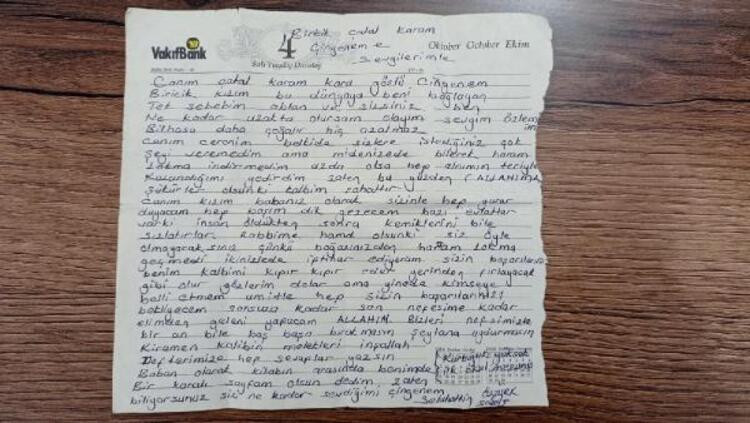 Biricik çatal karam
Çingeneme
Sevgilerimle
VakıfBank
4
Oktober October Ekim
Canım çatal karam kara gözlü Çingenem
Biricik kızım bu dünyaya beni bağlayan
Tek sebebim ablan ve sizsiniz ben
Ne kadar uzakta olursam olayım sevgim özlemim
Bilhosa daha çoğalır hiç azalmaz
Canım ceronim belkide sizlere istediğiniz çok
Şeyi veremedim ama midenizede bilerek haram
Lokma indirmedim azda olsa hep alnımın teriyle
Kazandığımı yedirdim zaten bu yüzden (ALLAHIMA)
Şükürler olsunki kalbim rahattır
Canım kızım babanız olarak sizinle hep gurur
duyacam hep başım dik gezecem bazı evlatlar
varki insan öldükten sonra kemiklerini bile
sızlatırlar Rabbime hamd olsunki siz öyle
olmayacaksınız çünkü boğazınızdan haram lokma
geçmedi ikinizlede iftihar ediyorum sizin başarılarınız
benim kalbimi kıpır kıpır eder yerinden fırlayacak
gibi olur gözlerim dolar ama yinede kimseye
belli etmem umitle hep sizin başarılarınızı
bekliyecem sonsuza kadar son nefesime kadar
elimden geleni yapıcam ALLAHIM Bizleri nefsimizle
bir an bile baş başa bırakmasın Şeytana uydurmasın
Kiramen katibin melekleri inşallah
Defterimize hep sevaplar yazsın
Baban olarak kitabın arasında benimde
Bir karalı sayfam olsun dedim zaten
biliyorsunuz sizi ne kadar sevdiğimi çingenem
Selahattin